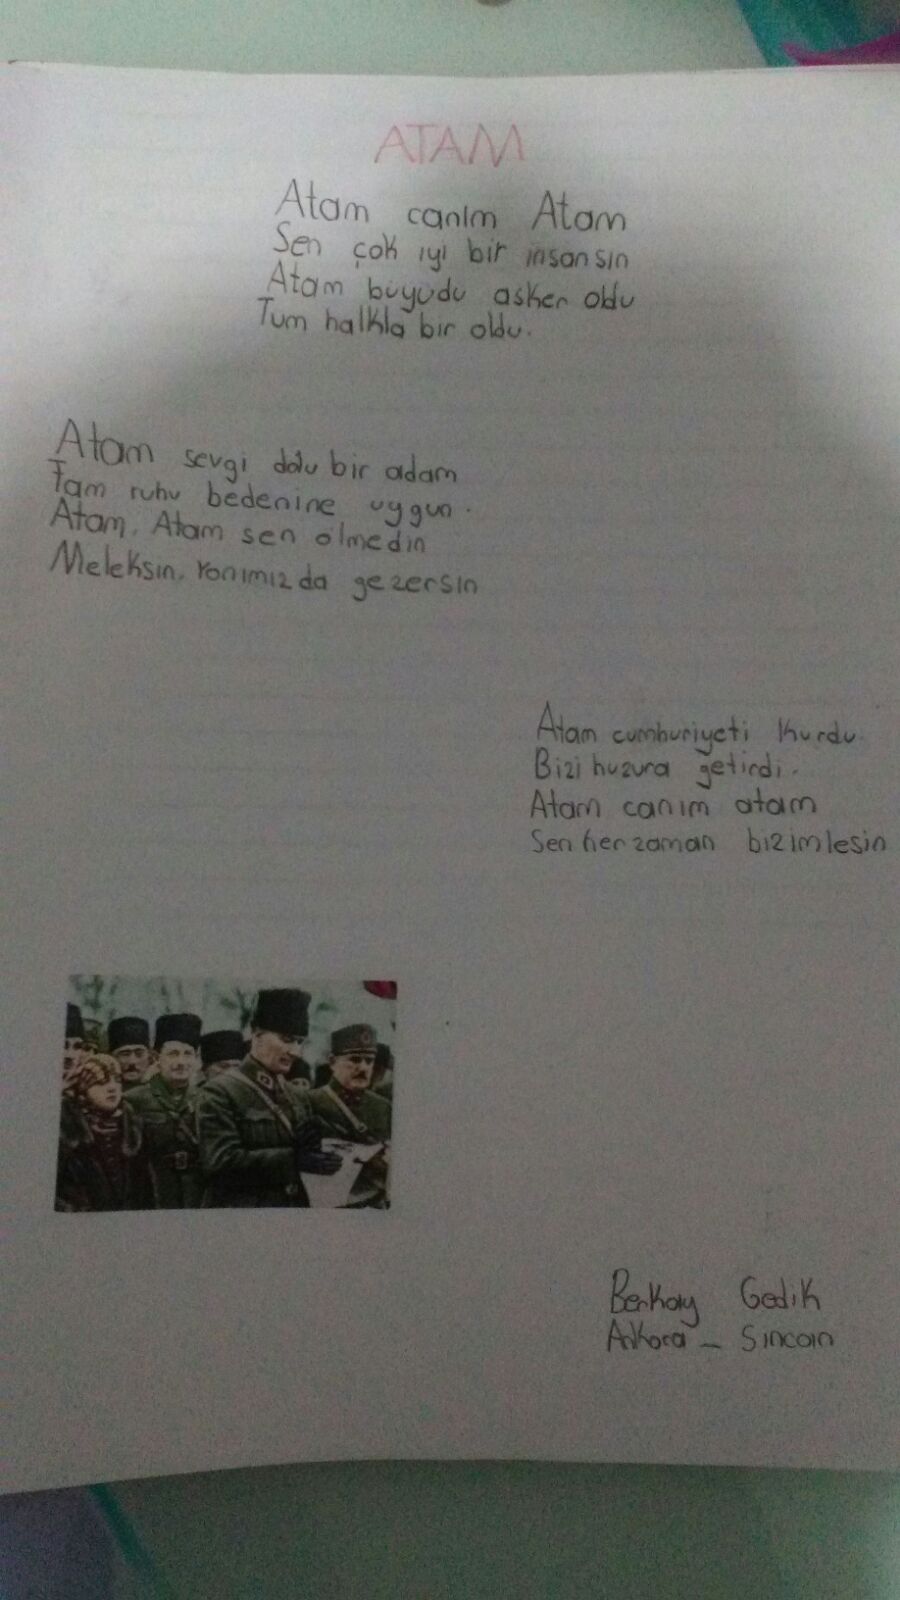 ATAM
Atam canım Atam
Sen çok iyi bir insansın
Atam büyüdü asker oldu
Tüm halkla bir oldu.
Atam sevgi dolu bir adam
Tam ruhu bedenine uygun.
Atam, Atam sen ölmedin
Meleksin, Yanımızda gezersin
Atam cumhuriyeti kurdu
Bizi huzura getirdi.
Atam canım atam
Sen her zaman bizimlesin
Berkay Gedik
Ankara - Sincan